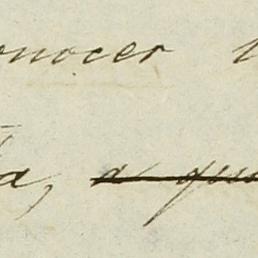 onocer
a, a qu